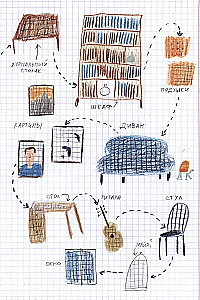 ЖУРНАЛЬНЫЙ
СТОЛИК
ШКАФ
ПОДУШКИ
КАРТИНЫ
ДИВАН
СТОЛ
ГИТАРА
СТУЛ
ОКНО